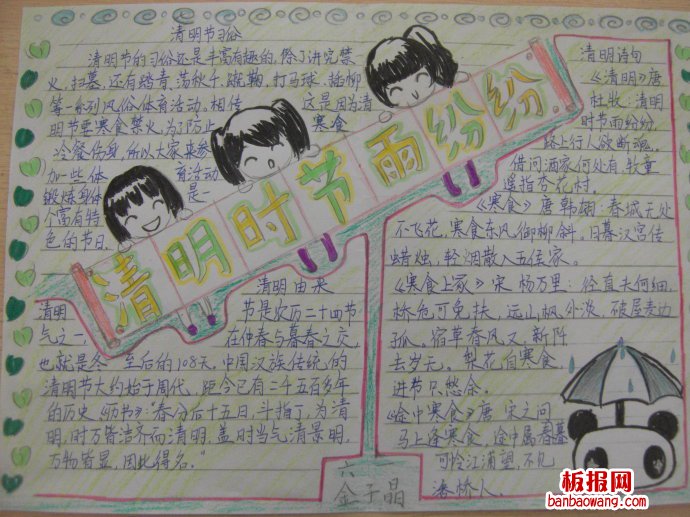 清明节习俗
清明节的习俗还是丰富有趣的,除了讲究禁
火、扫墓,还有踏青、荡秋千、蹴鞠、打马球、插柳
等一系列风俗体育活动。相传
这是因为清
明节要寒食禁火,为了防止
寒食
冷餐伤身,所以大家来参
加一些体
育活动
锻炼身体
是一
个富有特
色的节日。
清明时节雨纷纷
清明诗句
《清明》唐
杜牧:清明
时节雨纷纷,
路上行人欲断魂。
借问酒家何处有,牧童
遥指杏花村。
《寒食》唐 韩翃:春城无处
不飞花,寒食东风御柳斜。日暮汉宫传
蜡烛,轻烟散入五侯家。
《寒食上冢》宋 杨万里:径直夫何细,
桥危可免扶,远山枫外淡,破屋麦边
孤,宿草春风又,新阡
去岁无。梨花自寒食,
进节只愁余。
《途中寒食》唐 宋之问
马上逢寒食,途中属暮春
可怜江浦望,不见
洛桥人。
清明由来
清明
节是农历二十四节
气之一,
在仲春与暮春之交,
也就是冬
至后的108天。中国汉族传统的
清明节大约始于周代,距今已有二千五百多年
的历史《历书》:春分后十五日,斗指丁,为清
明,时万物皆洁齐而清明,盖时当气清景明,
万物皆显,因此得名。"
六
金子晶
板报网
banbaowang.com